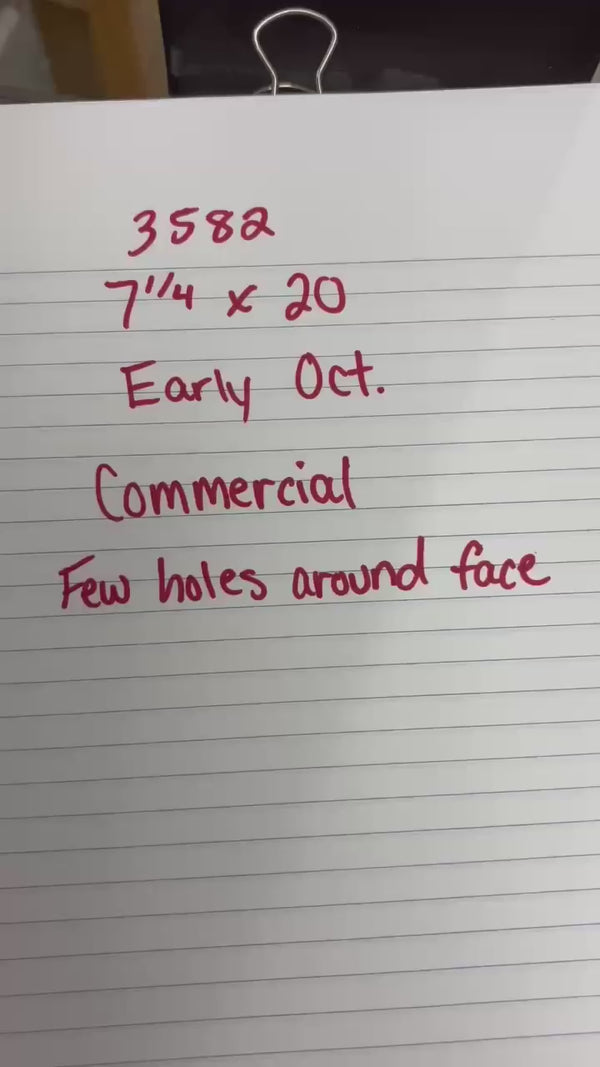 3582
7 1/4 x 20
Early Oct.
Commercial
Few holes around face